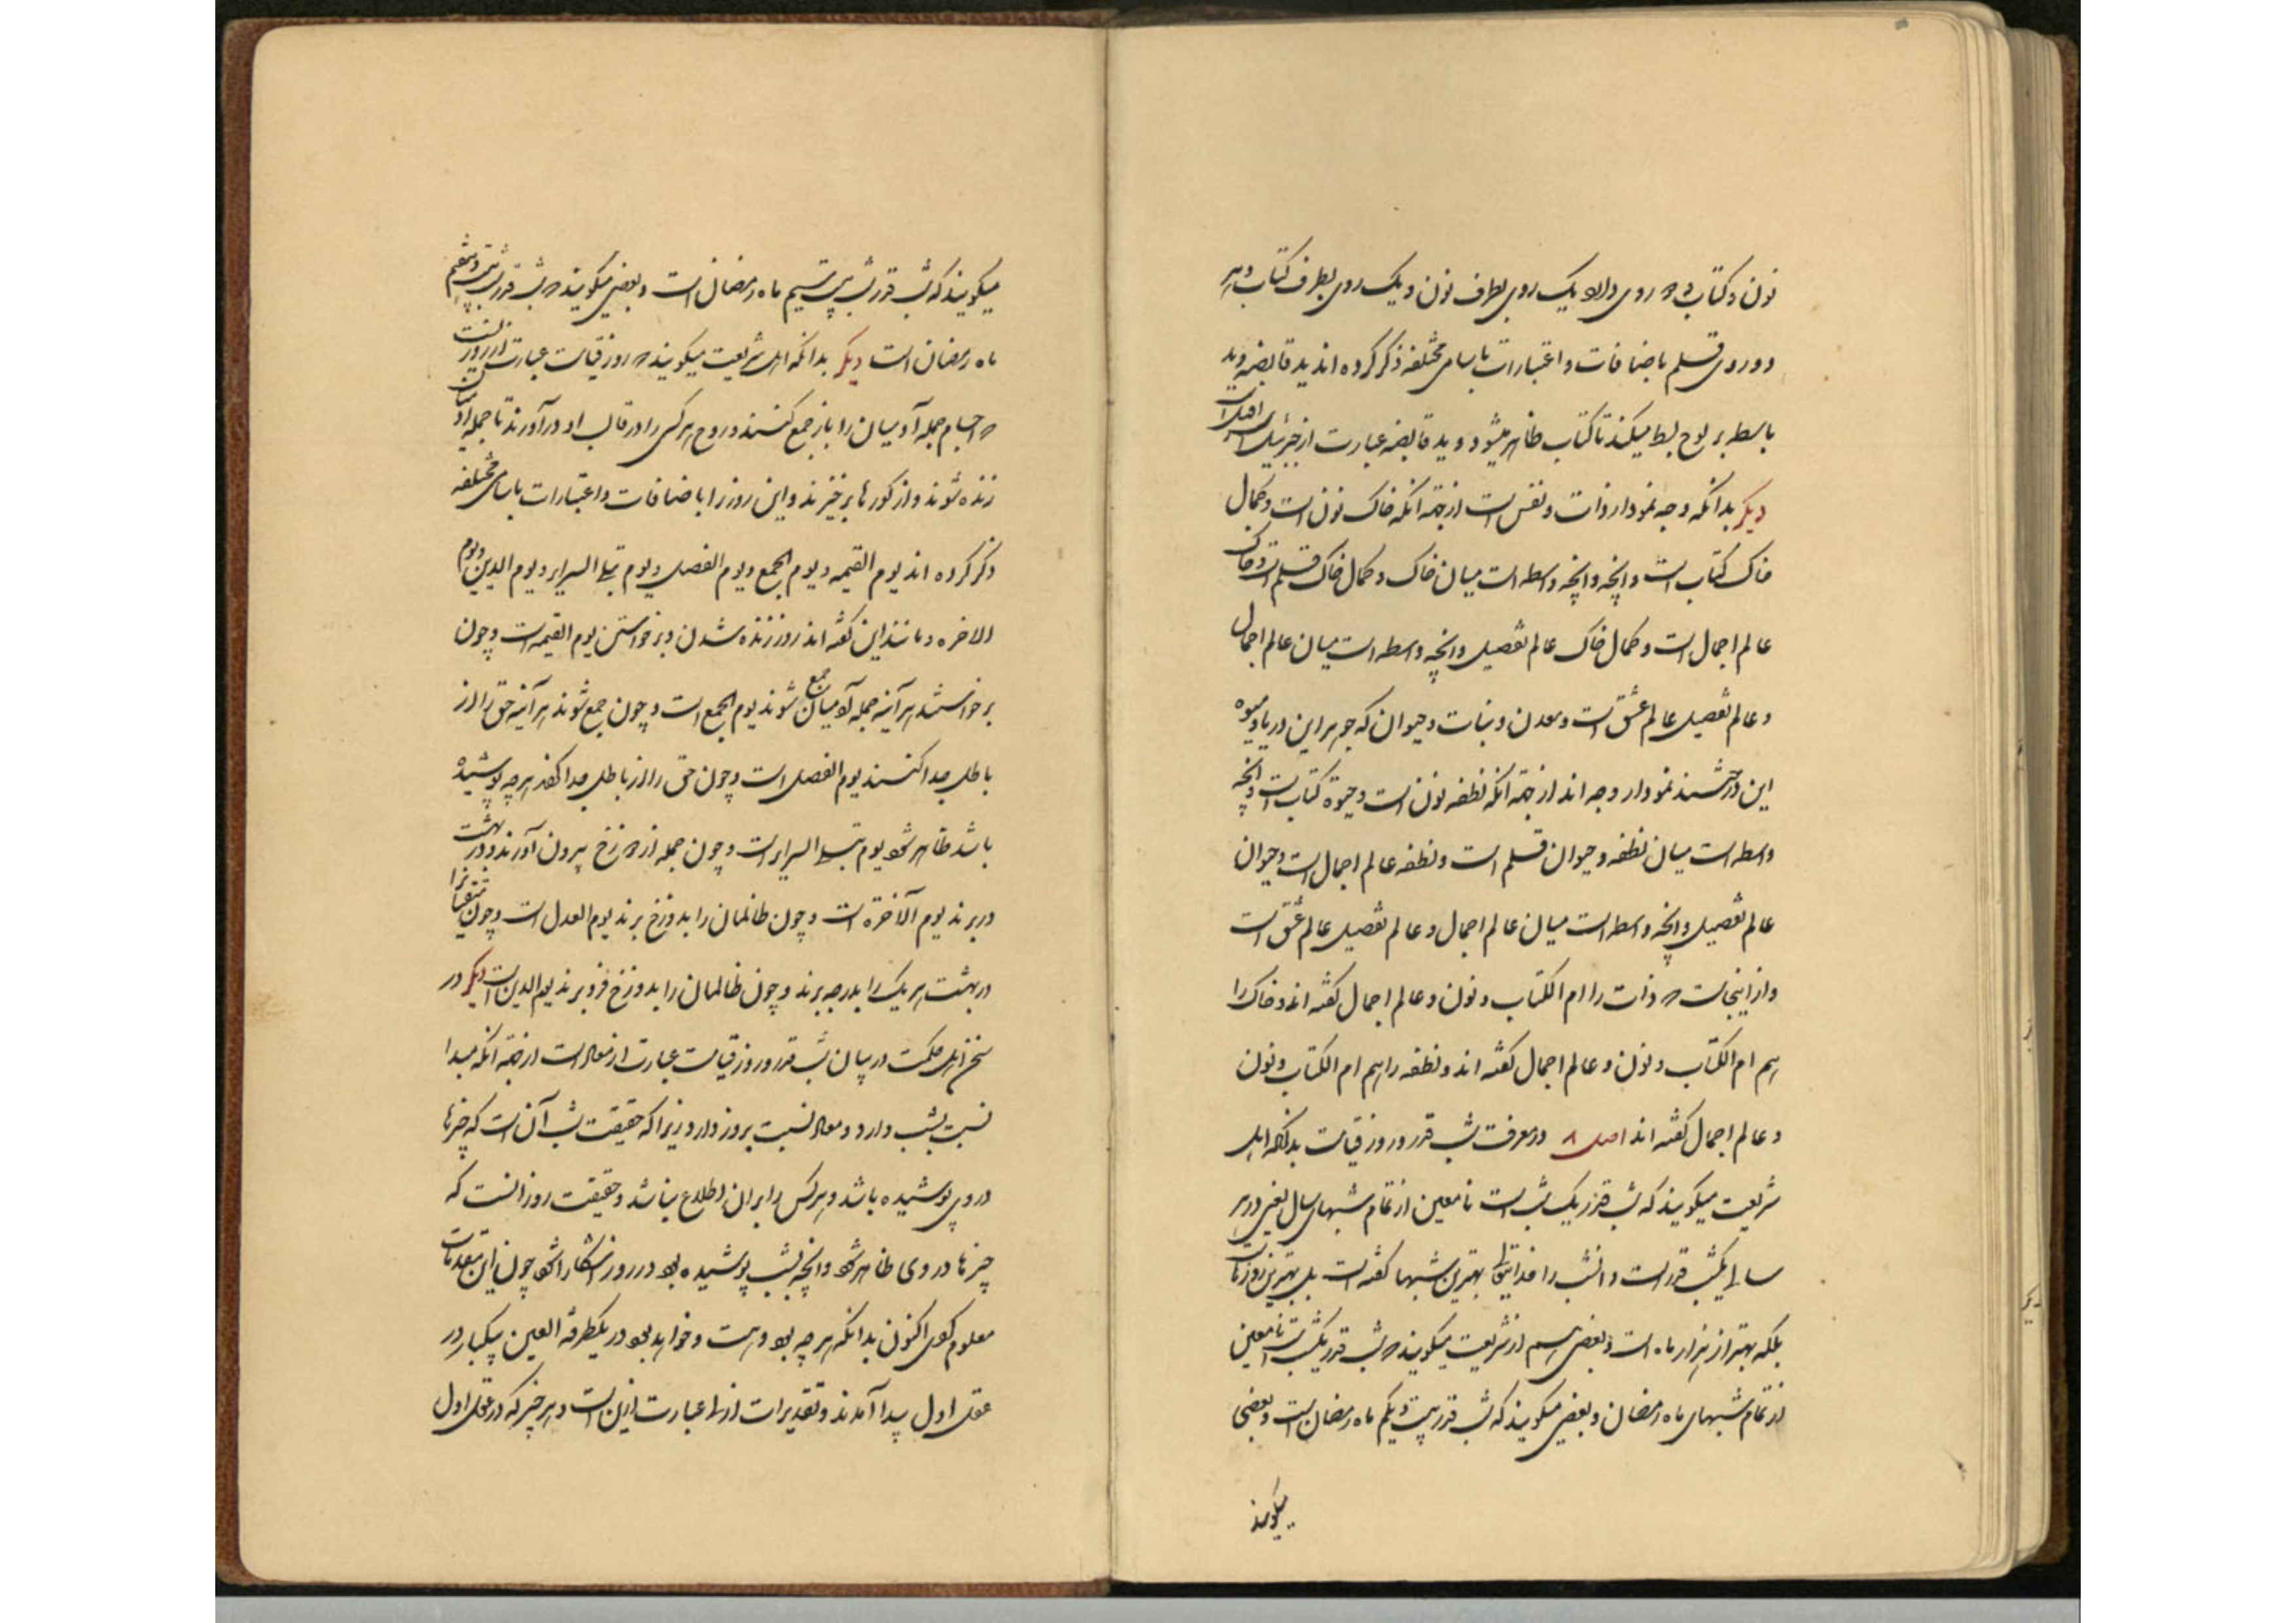 نون و کتاب دو روی دارد یک روی بطرف نون و یک روی بطرف کتاب و هر
دو روی قلم باضافات و اعتبارات باسامی مختلفه ذکر کرده اند ید قابضه و ید
باسطه بر لوح بسط میکند تا کتاب ظاهر میشود و ید قابضه عبارت از جبرئیل است
دیگر بدانکه وجه نمودار ذات و نفس است از جهة آنکه خاک نون است و کمال
خاک کتاب است و آنچه واسطه است میان خاک و کمال خاک قلم است و خاک
عالم اجمال است و کمال خاک عالم تفصیل و آنچه واسطه است میان عالم اجمال
و عالم تفصیل عالم عشق است و معدن و نبات و حیوان که جوهر این دریا و میوه
این درختند نمودار وجه اند از جهة آنکه نطفه نون است و حیوة کتاب است و آنچه
واسطه است میان نطفه و حیوان قلم است و نطفه عالم اجمال است و حیوان
عالم تفصیل و آنچه واسطه است میان عالم اجمال و عالم تفصیل عالم عشق است
و از اینجاست که ذات را ام الکتاب و نون و عالم اجمال گفته اند و خاک را
هم ام الکتاب و نون و عالم اجمال گفته اند و نطفه را هم ام الکتاب و نون
و عالم اجمال گفته اند اصل ۸ در معرفت شب قدر و روز قیامت بدانکه اهل
شریعت میگویند که شب قدر یک شب است نامعین از تمام شبهای سال یعنی در هر
سالی یکشب قدر است و آنشب را خدایتعالی بهترین شبها گفته است بل بهترین روزها
بلکه بهتر از هزار ماه است و بعضی هم از شریعت میگویند که شب قدر یکشب است نامعین
از تمام شبهای ماه رمضان و بعضی میگویند که شب قدر بیست و یکم ماه رمضان است و بعضی
میگویند
میگویند که شب قدر شب بیست سیم ماه رمضان است و بعضی میگویند که شب قدر شب بیست و هفتم
ماه رمضان است دیگر بدانکه اهل شریعت میگویند که روز قیامت عبارت از روزیست
که اجسام جمله آدمیان را باز جمع کنند و روح هر کسی را در قالب او درآورند تا جمله آدمیان
زنده شوند و از گورها برخیزند و این روز را باضافات و اعتبارات باسامی مختلفه
ذکر کرده اند یوم القیمه و یوم الجمع و یوم الفصل و یوم تبلی السرایر و یوم الدین و یوم
الاخره و مانند این گفته اند روز زنده شدن و برخواستن یوم القیمه است و چون
برخواستند هر آینه جمله آدمیان جمع شوند یوم الجمع است و چون جمع شوند هر آینه حق را از
باطل جدا کنند یوم الفصل است و چون حق را از باطل جدا کنند هر چه پوشیده
باشد ظاهر شود یوم تبلی السرایر است و چون جمله از دوزخ بیرون آورند و در بهشت
در برند یوم الآخرة است و چون ظالمان را بدوزخ برند یوم العدل است و چون متقیانرا
در بهشت هر یک را بدرجه برند و چون ظالمان را بدوزخ فرو برند یوم الدین است دیگر در
سخن اهل حکمت در بیان شب قدر و روز قیامت عبارت از معاد است از جهة آنکه مبدا
نسبت بشب دارد و معاد نسبت بروز دارد زیرا که حقیقت شب آن است که چیزها
در وی پوشیده باشد و هر کس را بر آن اطلاع نباشد و حقیقت روز آنست که
چیزها در وی ظاهر شود و آنچه بشب پوشیده بود در روز آشکارا شود چون این مقدمات
معلوم کردی اکنون بدانکه هر چه بود و هست و خواهد بود در یکطرفة العین بیکبار در
عقل اول پیدا آمدند و تقدیرات ازل عبارت ازین است و هر چیز که در عقل اول